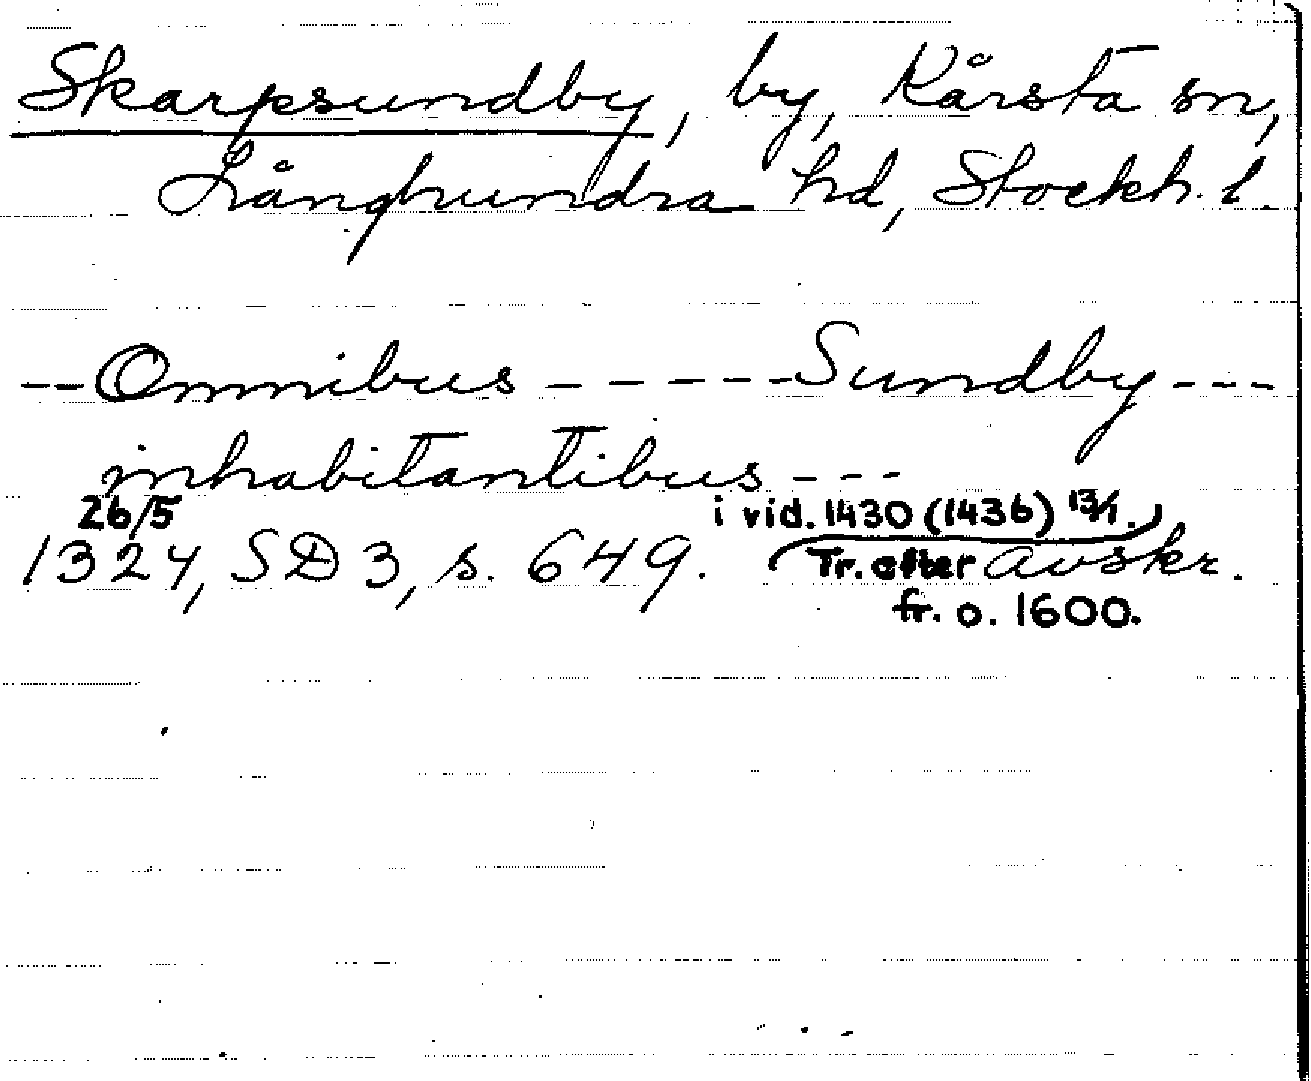 Skarpsundby, by, Kårsta sn,
Långhundra hd, Stockh. l.
--Omnibus - - - - - Sundby - - -
inhabitantibus - - -
26/5 i vid. 1430 (1436) 13/1.
1324, SD 3, s. 649. (Tr. efter avskr.
fr. o. 1600.